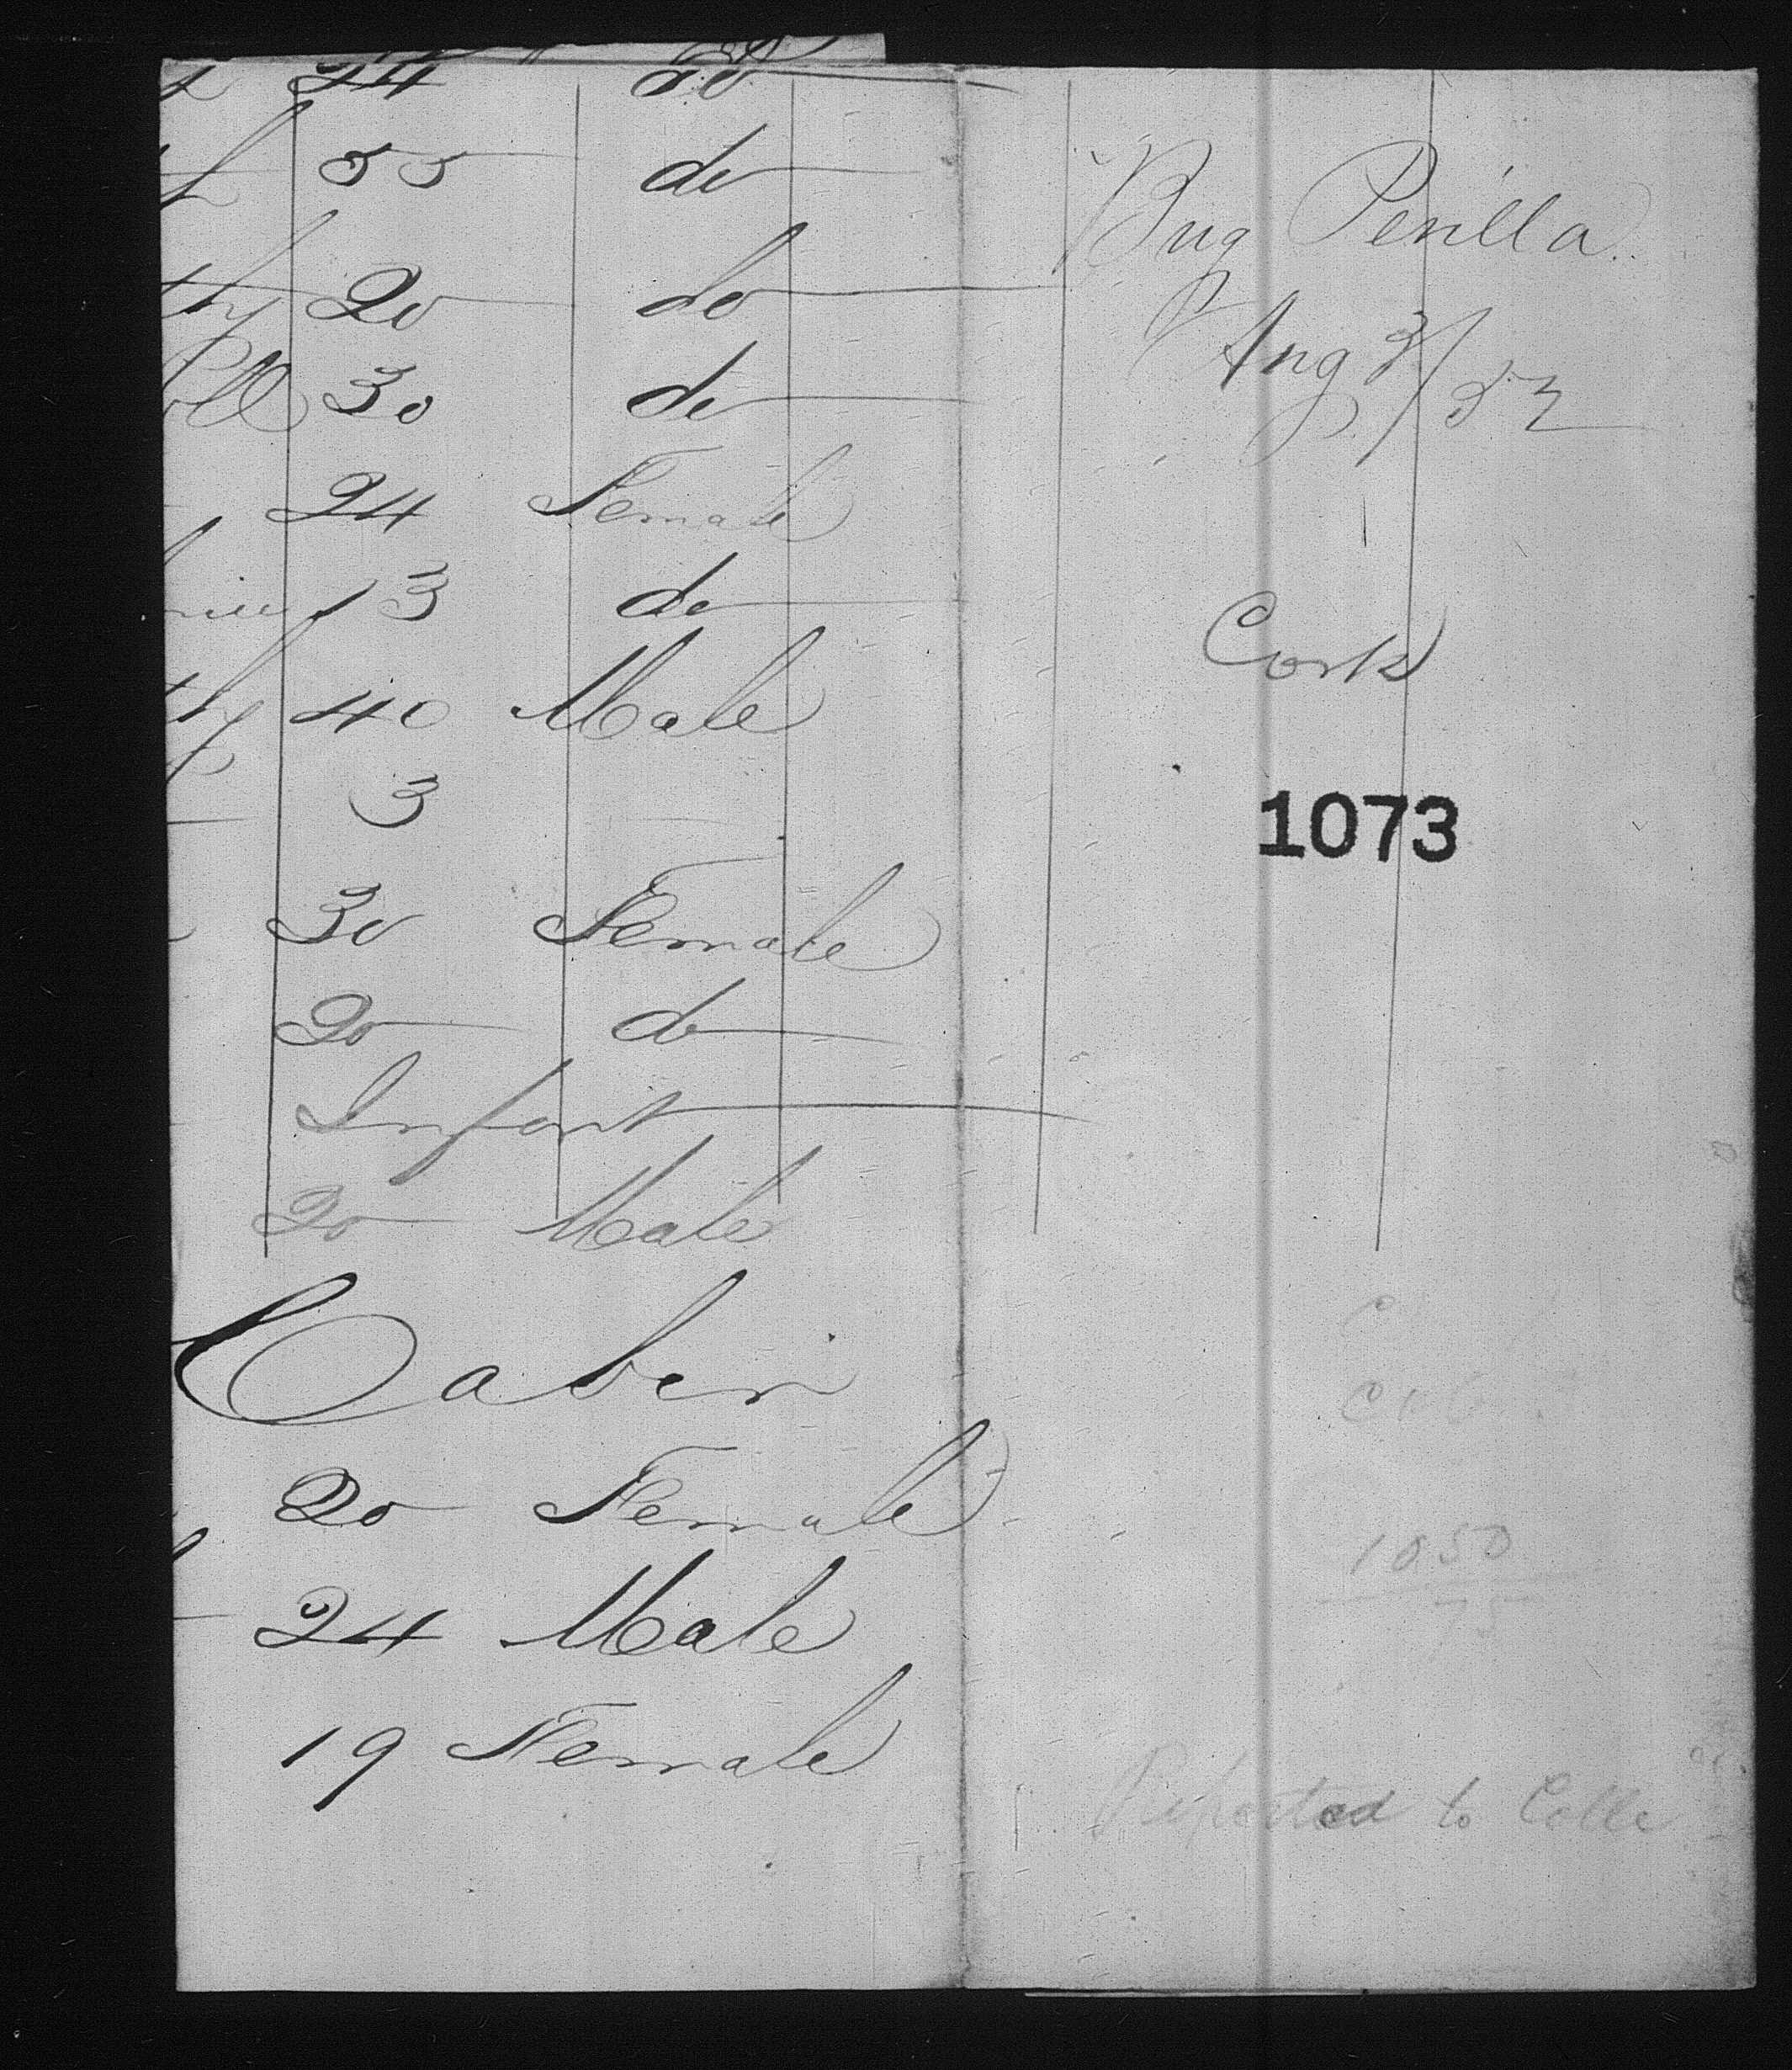 24 do
55 do
20 do
30 do
24 Female
13 do
40 Male
3
30 Female
20 do
Infant
20 Male
Cabin
20 Female
24 Male
19 Female
Brig Penilla
Aug 3/52
Cork
1073
1050
75
Reported to Colle